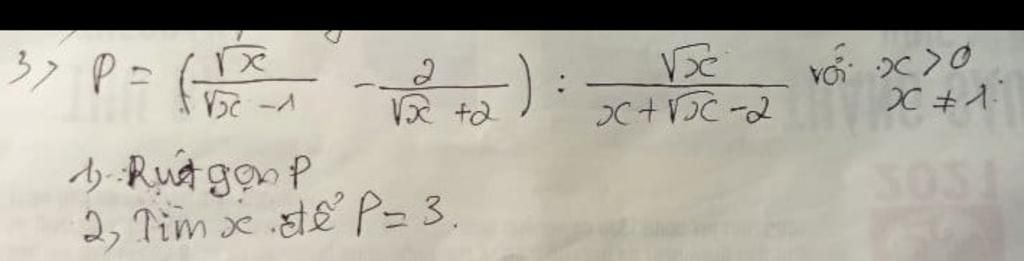 3> P = (√x / (√x - 1) - 2 / (√x + 2)) : √x / (x + √x - 2) với x > 0 x ≠ 1.
1, Rút gọn P
2, Tìm x để P = 3.
2021